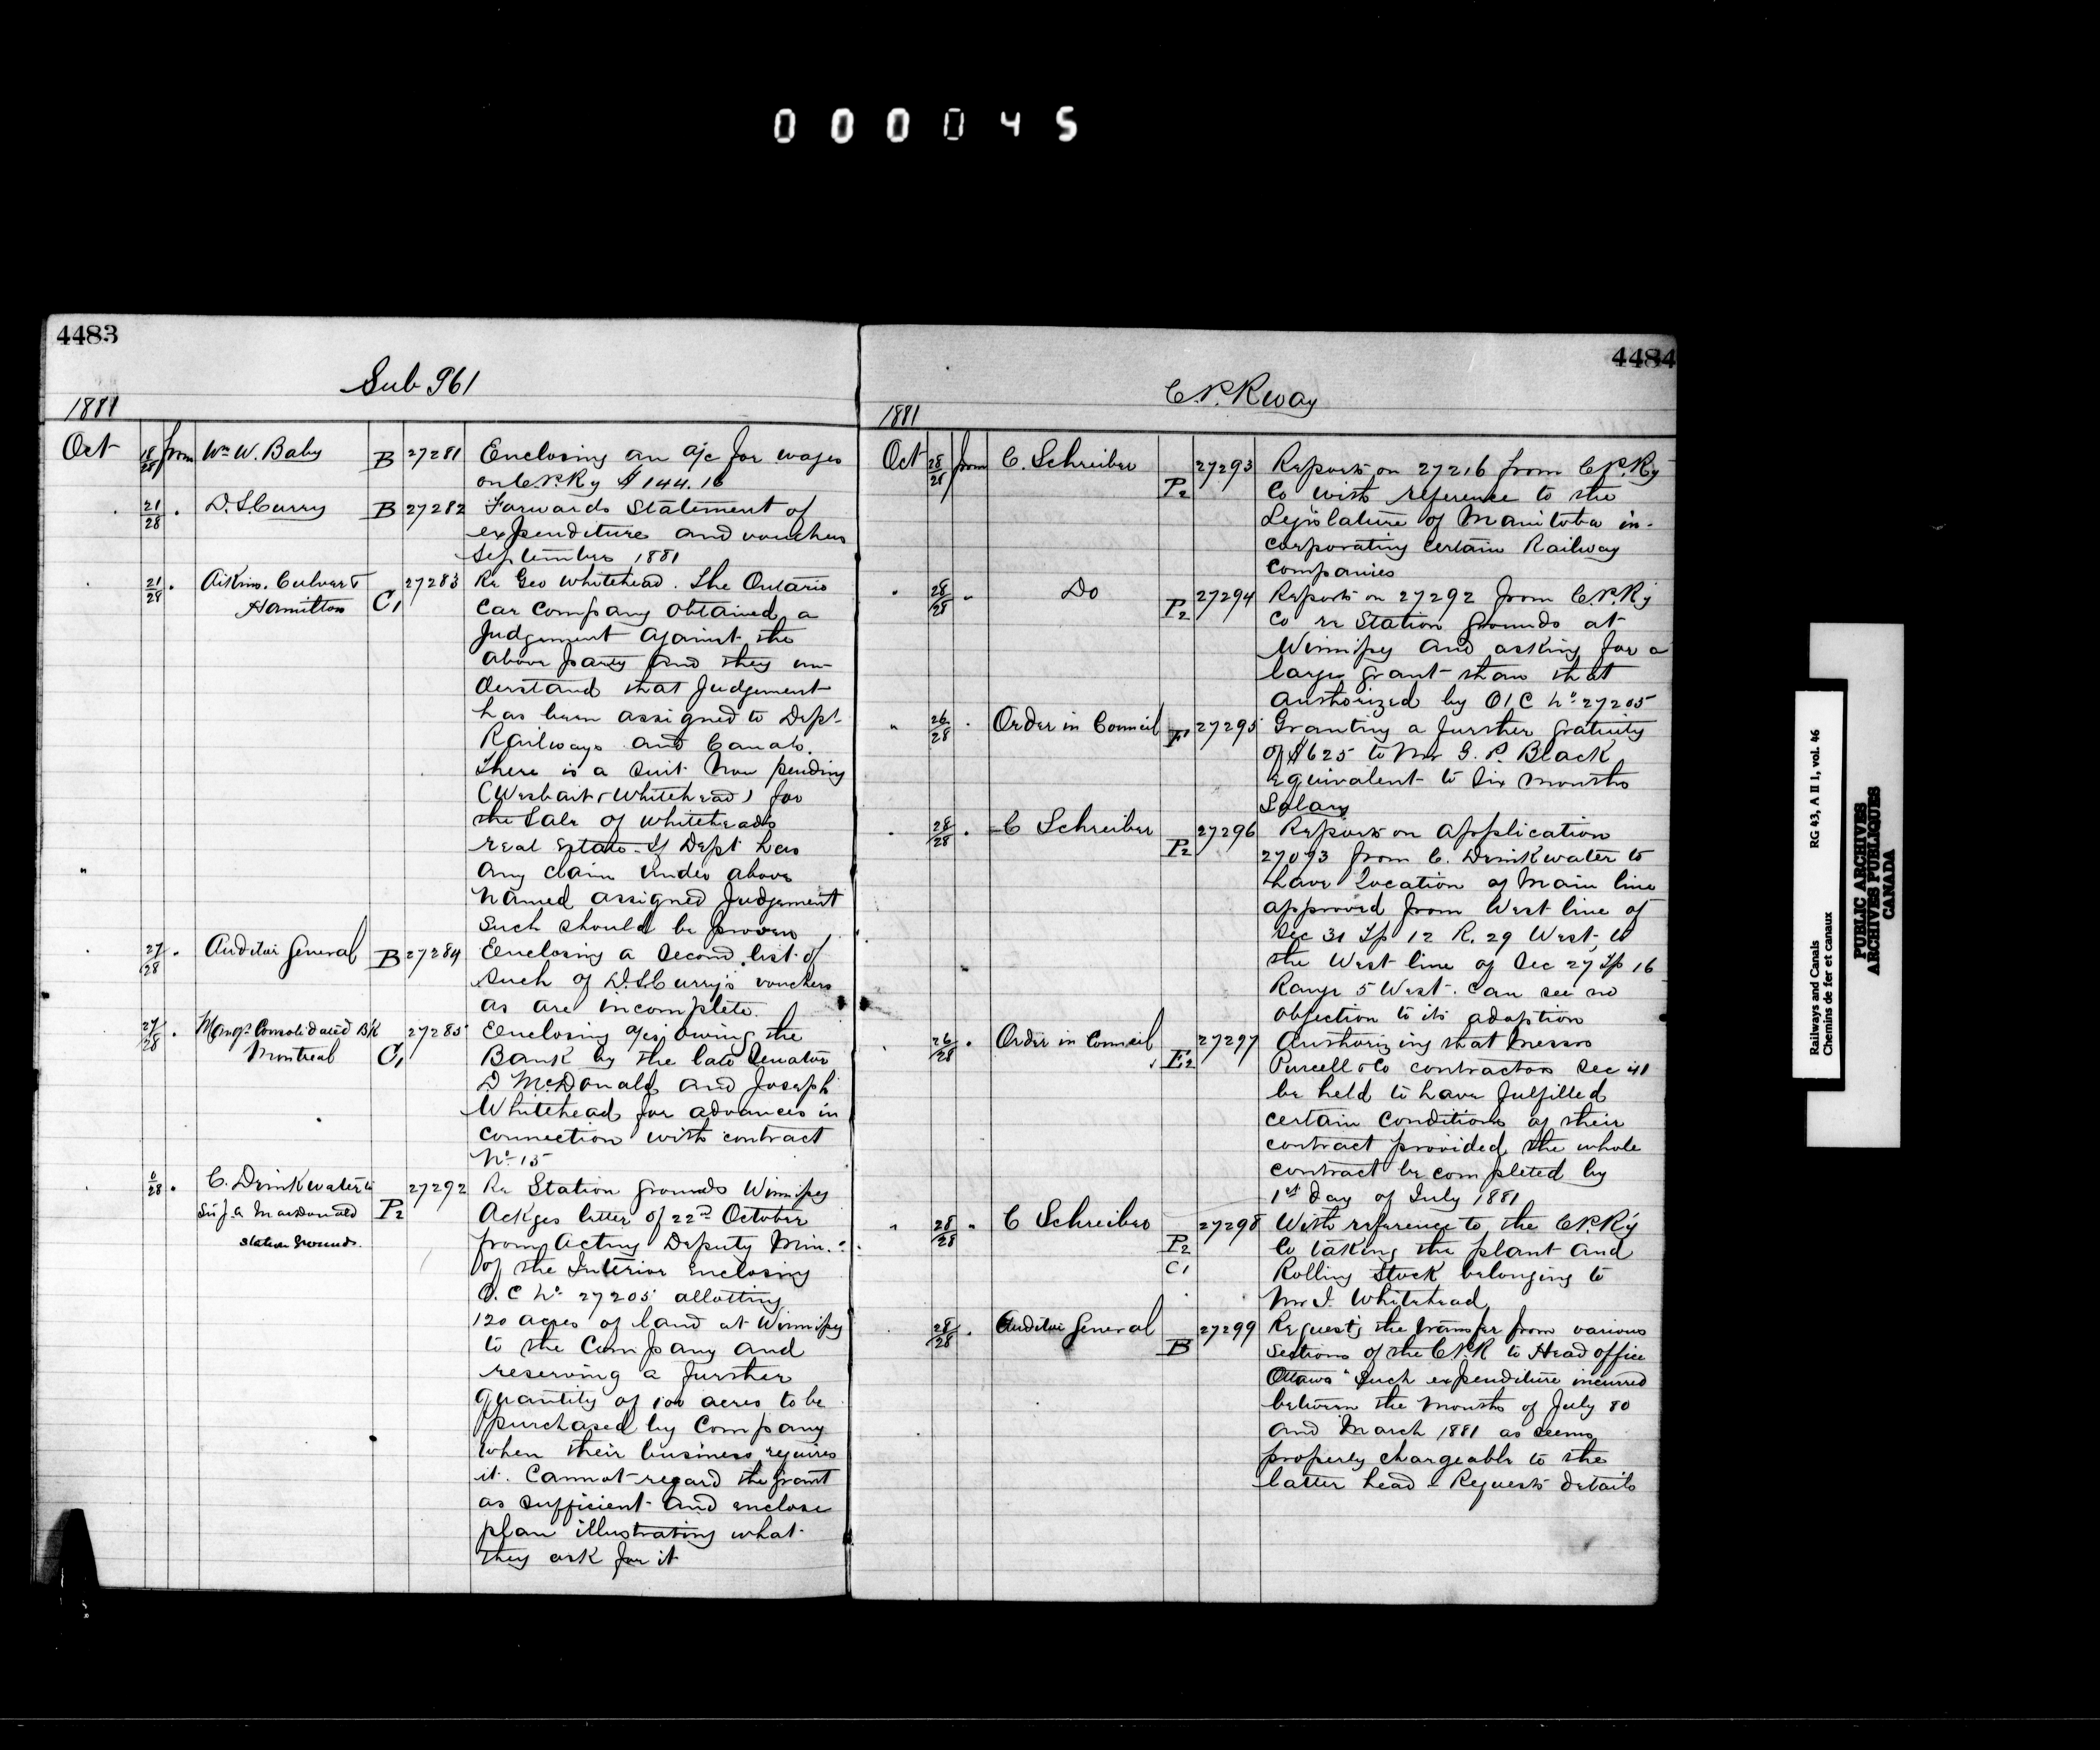 000045
4483
Sub 961
1881
Oct 18/28 from Wm W. Baby B 27281 Enclosing an a/c for wages
on C.P.Ry $144.16
21/28 . D. S. Curry B 27282 Forwards Statement of
expenditure and vouchers
September 1881
21/28 . Aikins, Culver & 27283 Re Geo Whitehead. The Ontario
Hamilton C1 Car Company obtained a
Judgement against the
above party and they un-
derstand that Judgement
has been assigned to Dept
Railways and Canals.
There is a suit now pending
( Whitehead) for
the Sale of Whiteheads
real Estate. If Dept has
" any claim under above
named assigned Judgement
such should be proven
27/28 . Auditor General B 27284 Enclosing a second list of
such of D. S. Curry's vouchers
as are incomplete.
27/28 . Mangr Consolidated B'k 27285 Enclosing a/cs owing the
Montreal C1 Bank by the late Senator
D McDonald and Joseph
Whitehead for advances in
connection with contract
No 15
6/28 . C. Drinkwater to 27292 Re Station grounds Winnipeg
Sir J. A MacDonald P2 Ackges letter of 22nd October
Station Grounds. from Acting Deputy Min.
of the Interior enclosing
O. C No 27205 allotting
120 acres of land at Winnipeg
to the Company and
reserving a further
quantity of 100 acres to be
purchased by Company
when their business requires
it. Cannot regard the grant
as sufficient and enclose
plan illustrating what
they ask for it
4484
C.P.Rway
1881
Oct 28/28 from C. Schreiber 27293 Reports on 27216 from C.P.Ry
P2 Co with reference to the
Legislature of Manitoba in-
corporating certain Railway
Companies
28/28 " Do 27294 Reports on 27292 from C.P.Ry
P2 Co re Station grounds at
Winnipeg and asking for a
larger grant than that
authorized by O/C No 27205
" 26/28 . Order in Council F1 27295 Granting a further gratuity
of $625 to Mr G. P. Black
equivalent to Six months
Salary
28/28 . C Schreiber 27296 Reports on application
P2 27093 from C. Drinkwater to
have location of Main line
approved from West line of
Sec 31 Tp 12 R. 29 West, to
the West line of Sec 27 Tp 16
Range 5 West. Can see no
objection to its adoption
26/28 . Order in Council 27297 Authorizing that Messrs
E2 Purcell & Co contractors Sec 41
be held to have fulfilled
certain conditions of their
contract provided the whole
contract be completed by
1st day of July 1881
" 28/28 " C Schreiber 27298 With reference to the C.P.Ry
P2 Co taking the plant and
C1 Rolling Stock belonging to
Mr J. Whitehead
28/28 . Auditor General 27299 Requests the transfer from various
B Sections of the C.P.R to Head office
Ottawa such expenditure incurred
between the months of July 80
and March 1881 as seems
properly chargeable to the
latter head - Requests details
Railways and Canals RG 43, A II 1, vol. 46
Chemins de fer et canaux
PUBLIC ARCHIVES
ARCHIVES PUBLIQUES
CANADA